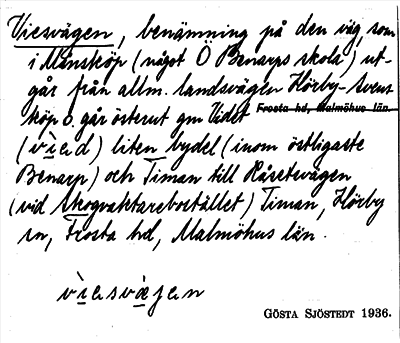 Viesvägen, benämning på den väg, som
i Månsköp (något Ö Benarps skola) ut-
går från allm. landsvägen Hörby-Svens
köp o. går österut gm Videt Frosta hd, Malmöhus län.
(vìed) liten bydel (inom östligaste
Benarp) och Timan till Råsetsvägen
(vid Skogvaktarebostället) Timan, Hörby
sn, Frosta hd, Malmöhus län.
vìesvæjen
GÖSTA SJÖSTEDT 1936.